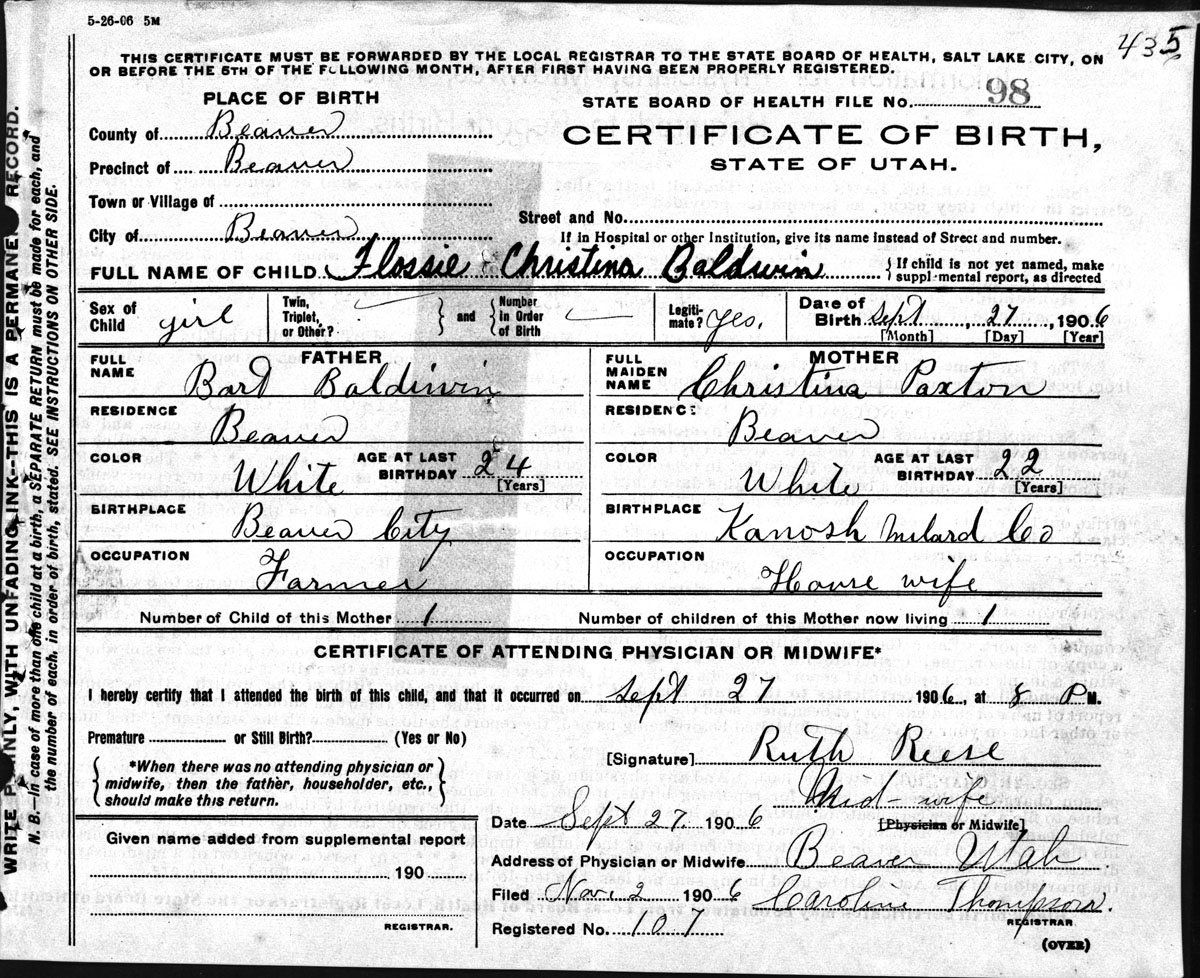 5-26-06 5M
435
THIS CERTIFICATE MUST BE FORWARDED BY THE LOCAL REGISTRAR TO THE STATE BOARD OF HEALTH, SALT LAKE CITY, ON
OR BEFORE THE 5TH OF THE FOLLOWING MONTH, AFTER FIRST HAVING BEEN PROPERLY REGISTERED.
PLACE OF BIRTH
STATE BOARD OF HEALTH FILE No. 98
County of Beaver
CERTIFICATE OF BIRTH,
Precinct of Beaver
STATE OF UTAH.
Town or Village of
Street and No.
City of Beaver
If in Hospital or other Institution, give its name instead of Street and number.
FULL NAME OF CHILD Flossie Christina Baldwin { If child is not yet named, make
supplemental report, as directed
Sex of Child girl
Twin, Triplet, or Other? } and { Number in Order of Birth
Legiti-mate? yes.
Date of Birth Sept, 27, 1906
[Month] [Day] [Year]
FATHER
FULL NAME Bart Baldwin
RESIDENCE Beaver
COLOR White AGE AT LAST BIRTHDAY 24 [Years]
BIRTHPLACE Beaver City
OCCUPATION Farmer
MOTHER
FULL MAIDEN NAME Christina Paxton
RESIDENCE Beaver
COLOR White AGE AT LAST BIRTHDAY 22 [Years]
BIRTHPLACE Kanosh Milard Co
OCCUPATION House wife
Number of Child of this Mother 1 Number of children of this Mother now living 1
CERTIFICATE OF ATTENDING PHYSICIAN OR MIDWIFE*
I hereby certify that I attended the birth of this child, and that it occurred on Sept 27 1906, at 8 P M.
Premature or Still Birth? (Yes or No)
[Signature] Ruth Reese
{ *When there was no attending physician or
midwife, then the father, householder, etc.,
should make this return. }
Mid-wife
[Physician or Midwife]
Date Sept 27. 1906
Address of Physician or Midwife Beaver Utah
Filed Nov. 2 1906 Caroline Thompson.
REGISTRAR
Registered No. 107
(OVER)
Given name added from supplemental report
190
REGISTRAR.
WRITE PLAINLY, WITH UNFADING INK--THIS IS A PERMANENT RECORD.
N. B.--In case of more than one child at a birth, a SEPARATE RETURN must be made for each, and
the number of each, in order of birth, stated. SEE INSTRUCTIONS ON OTHER SIDE.